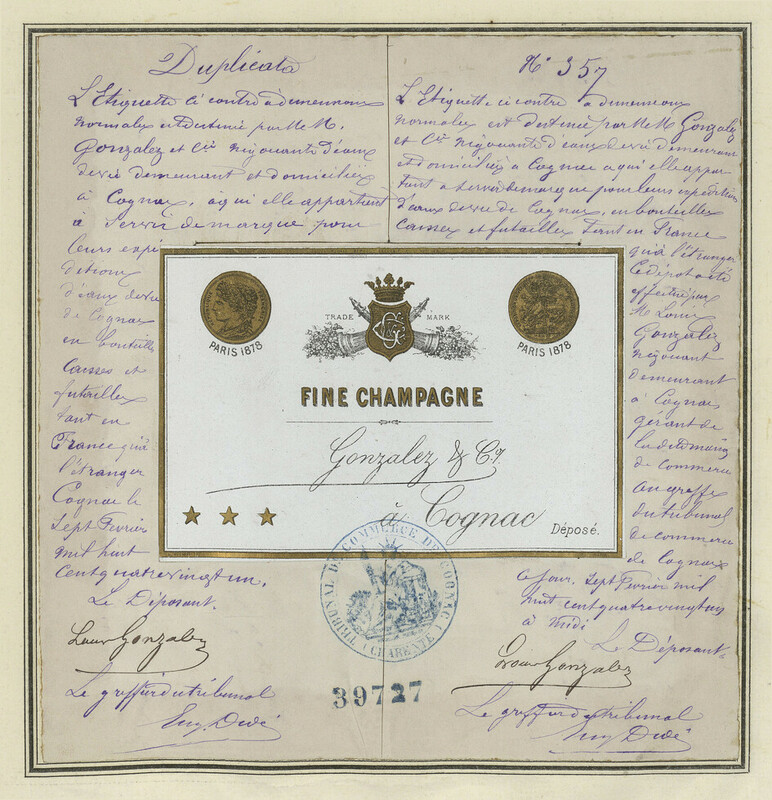 Duplicata
L'Etiquette ci contre à demennoux
normalex est destiné par M M.
Gonzalez et Cie négociants d'eaux
de vie demeurant et domiciliés
à Cognac, à qui elle appartient
a servir de marque pour
leurs expé
ditions
d'eaux de vie
de Cognac
en bouteilles
caisses et
futailles
tant en
France qu'à
l'étranger
Cognac le
sept Fevrier
mil huit
cent quatre vingt un.
Le Déposant.
Louis Gonzalez
Le greffier du tribunal
N° 357
L'Etiquette ci contre
est destiné par M M Gonzalez
et Cie négociants d'eaux de vie demeurant
et domiciliés à Cognac a qui elle appar
tient a servir de marque pour leurs expéditions
d'eaux de vie de Cognac, en bouteilles
caisses et futailles tant en France
qu'à l'étranger
Ce dépot a été
effectué par
M Louis
Gonzalez
négociant
demeurant
à Cognac
gérant de
la dite maison
de commerce
au greffe
du tribunal
de commerce
de Cognac
ce jour sept Fevrier mil
huit cent quatre vingt un
à midi
Le Déposant
Louis Gonzalez
Le greffier du tribunal
TRADE MARK
PARIS 1878
PARIS 1878
FINE CHAMPAGNE
Gonzalez & Cy.
à Cognac
Déposé.
TRIBUNAL DE COMMERCE DE COGNAC
(CHARENTE)
39727